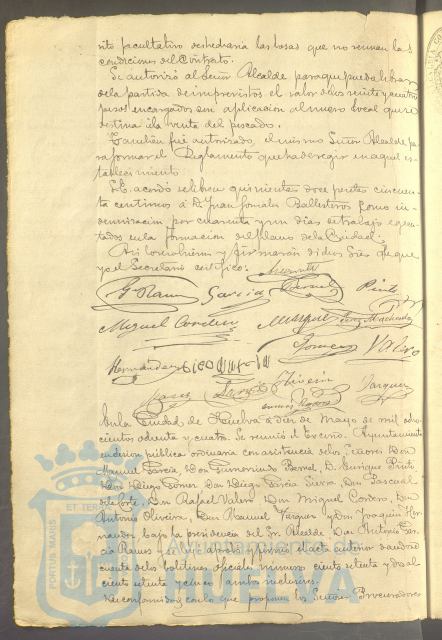 rito facultativo desharia las losas que no reunan las
condiciones del Contrato.
Se autorizó al Señor Alcalde para que pueda librar
de la partida de imprevistos el valor de los veinte y cuatro
pesos encargados con aplicacion al nuevo local que se
destina á la venta del pescado.
Tambien fué autorizado, el mismo Señor Alcalde pa
ra formar el Reglamento que ha de regir en aquel es-
tablecimiento.
Se acordó se libren quinientas doce pesetas cincuen
ta centimos á D. Juan Gonzalez Ballesteros como in-
demnizacion por cuarenta y un dias de trabajo ejecu-
tados en la formacion del plano de la Ciudad.
Asi lo resolvieron y firmarán dichos Sres. de que
yo el Secretario certifico.
G. Ramos Garcia Bernal Pinto
Miguel Cordero Marquez
Gomez Valero
Hernandez
Oliveira Vazquez
En la Ciudad de Huelva á diez de Mayo de mil ocho-
cientos ochenta y cuatro. Se reunió el Excmo. Ayuntamiento
en sesion pública ordinaria con asistencia de los Señores Don
Manuel Garcia, Don Gumersindo Bernal, D. Enrique Pinto,
Don Diego Gomez, Don Diego Garcia Sierra, Don Pascual
del Corte, Don Rafael Valero, Don Miguel Cordero, Don
Antonio Oliveira, Don Manuel Vazquez y Don Joaquin Her-
nandez, bajo la presidencia del Sr. Alcalde Don Antonio Gar-
cia Ramos y aprobada y firmada el acta anterior se dió
cuenta de los boletines oficiales números ciento setenta y dos al
ciento setenta y cinco ambos inclusives.
De conformidad con lo que proponen los Señores Procuradores
PORTUS MARIS ET TERRAE
Ayuntamiento de
HUELVA